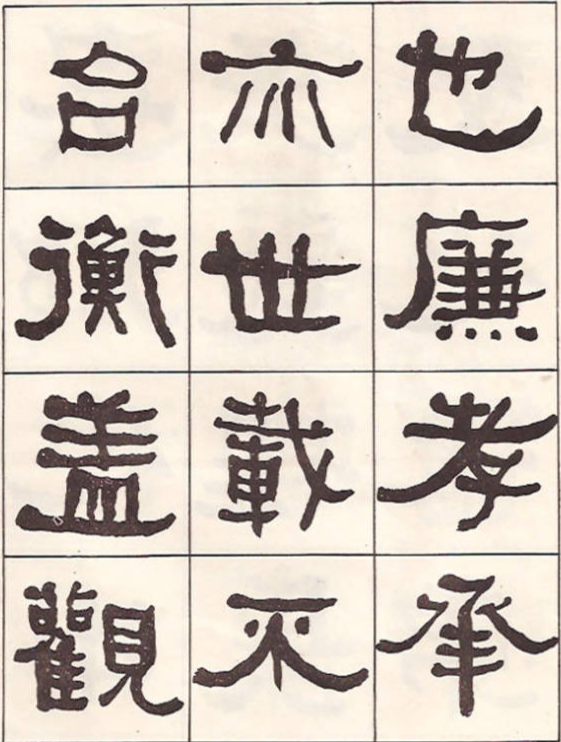 也廉孝承
亦世載不
台衡盖觀